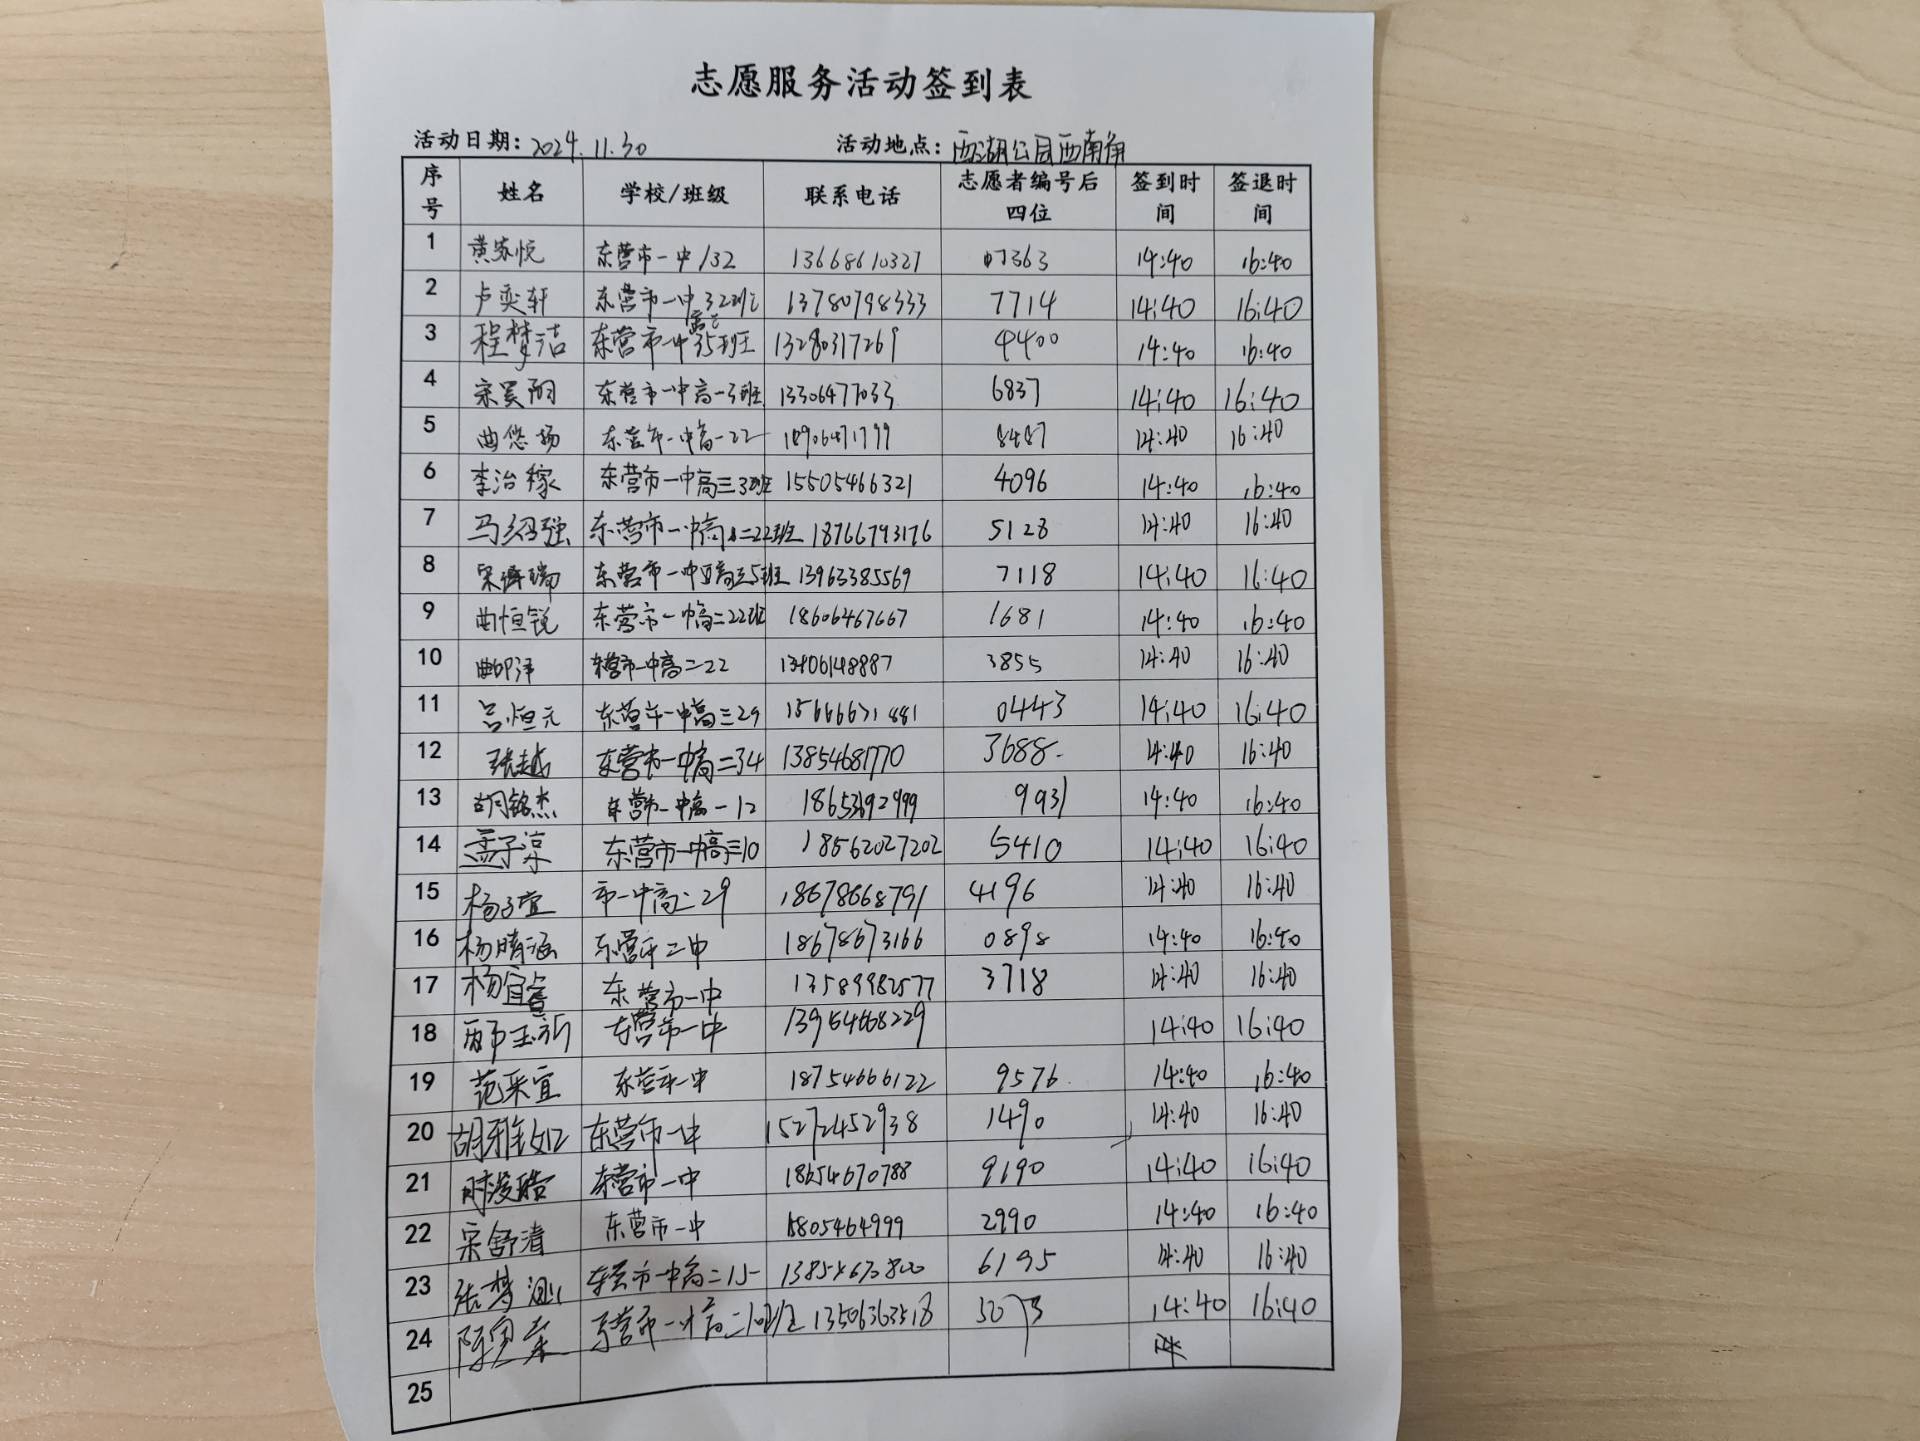 志愿服务活动签到表
活动日期: 2024.11.30 活动地点: 西湖公园西南角
序号 姓名 学校/班级 联系电话 志愿者编号后四位 签到时间 签退时间
1 黄苏悦 东营市一中/32 13668610327 7363 14:40 16:40
2 卢奕轩 东营市一中32班 13780798333 7714 14:40 16:40
3 程梦洁 东营市一中高二35班 13280317269 4400 14:40 16:40
4 东营市一中高一3班 13306477033 6837 14:40 16:40
5 曲悠扬 东营市一中高一22 8487 14:40 16:40
6 李治稼 东营市一中高三3班 15505466321 4096 14:40 16:40
7 马绍强 东营市一中高二22班 18766793176 5128 14:40 16:40
8 东营市一中高三5班 13963385569 7118 14:40 16:40
9 曲恒锐 东营市一中高二22班 18606467667 1681 14:40 16:40
10 东营市一中高二22 3855 14:40 16:40
11 吕恒元 东营市一中高三29 15666671881 0443 14:40 16:40
12 张越 东营市一中高二34 13854681770 3688 14:40 16:40
13 胡铭杰 东营市一中高一12 9931 14:40 16:40
14 孟子凉 东营市一中高三10 18562027202 5410 14:40 16:40
15 杨子宜 市一中高二29 18678668791 4196 14:40 16:40
16 杨晴涵 东营市二中 18678673166 0898 14:40 16:40
17 杨宜睿 东营市一中 13589982577 3718 14:40 16:40
18 东营市一中 13954668229 14:40 16:40
19 范采宜 东营市一中 18754666122 9576 14:40 16:40
20 胡雅如 东营市一中 15272452938 1490 14:40 16:40
21 东营市一中 18654670788 9190 14:40 16:40
22 宋舒清 东营市一中 2990 14:40 16:40
23 张梦 东营市一中高二15 13854673800 6195 14:40 16:40
24 东营市一中高二 13506363518 5073 14:40 16:40
25